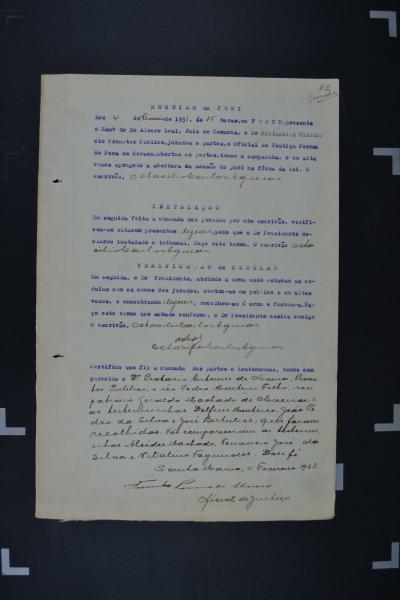 82
REUNIAO do JURI
Aos 4 de Fevereiro de 1933, ás 15 horas, no FORUM, presente
o Exmº Sr Dr Alvaro Leal, Juiz de Comarca, o Dr
Promotor Publico, jurados e partes, o Oficial de Justiça
de Pena de Moraes, abertas as portas, tocou a campainha, e em alta
vozes apregoou a abertura da sessão do juri na fórma da lei. O
escrivão, Octacilio Carlos Aguiar
INSTALAÇÃO
Em seguida feita a chamada dos jurados por mim escrivão, verifi-
cou-se estarem presentes dezenove, pelo que o Dr Presidente de-
clarou instalado o tribunal. Faço este termo. O escrivão Octa
cilio Carlos Aguiar
VERIFICAÇÃO de CEDULAS
Em seguida, o Dr Presidente, abrindo a urna onde estavam as ce-
dulas com os nomes dos jurados, contou-as em publico e em altas
vozes, e encontrando dezenove, recolheu-as á urna e fechou-a. Fa-
ço este termo que achado conforme, o Dr Presidente assina comigo
O escrivão, Octacilio Carlos Aguiar
Octacilio Carlos Aguiar
Certifico que fiz a chamada das partes e testemunhas, tendo com-
parecido o Dr Protasio Antunes de Oliveira, Promo
tor Publico, o réo Pedro Monteiro Filho, seu
patrono Geraldo Machado de
as testemunhas Delfino Monteiro, João Pe
dro da Silva e José que foram
recolhidas. Não compareceram as testemu-
nhas Alcides Machado, José da
Silva e Vitalino Fagundes. Dou fé
Santa Maria, 4 Fevereiro 1933
Oficial de Justiça